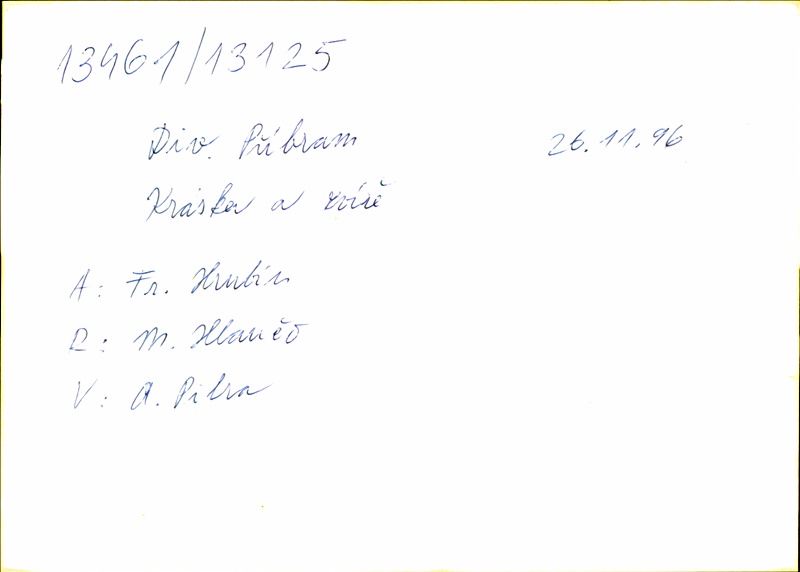 13461/13125
Div. Příbram 26.11.96
Kráska a zvíře
A: Fr. Hrubín
R: M. Hlaučo
V: A. Pilra